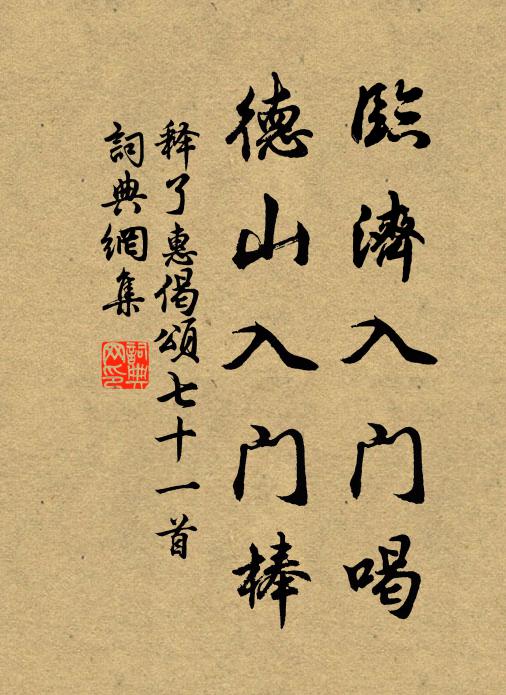 臨濟入门喝
德山入门棒
释了惠偈頌七十一首
詞典網集
詞典網印